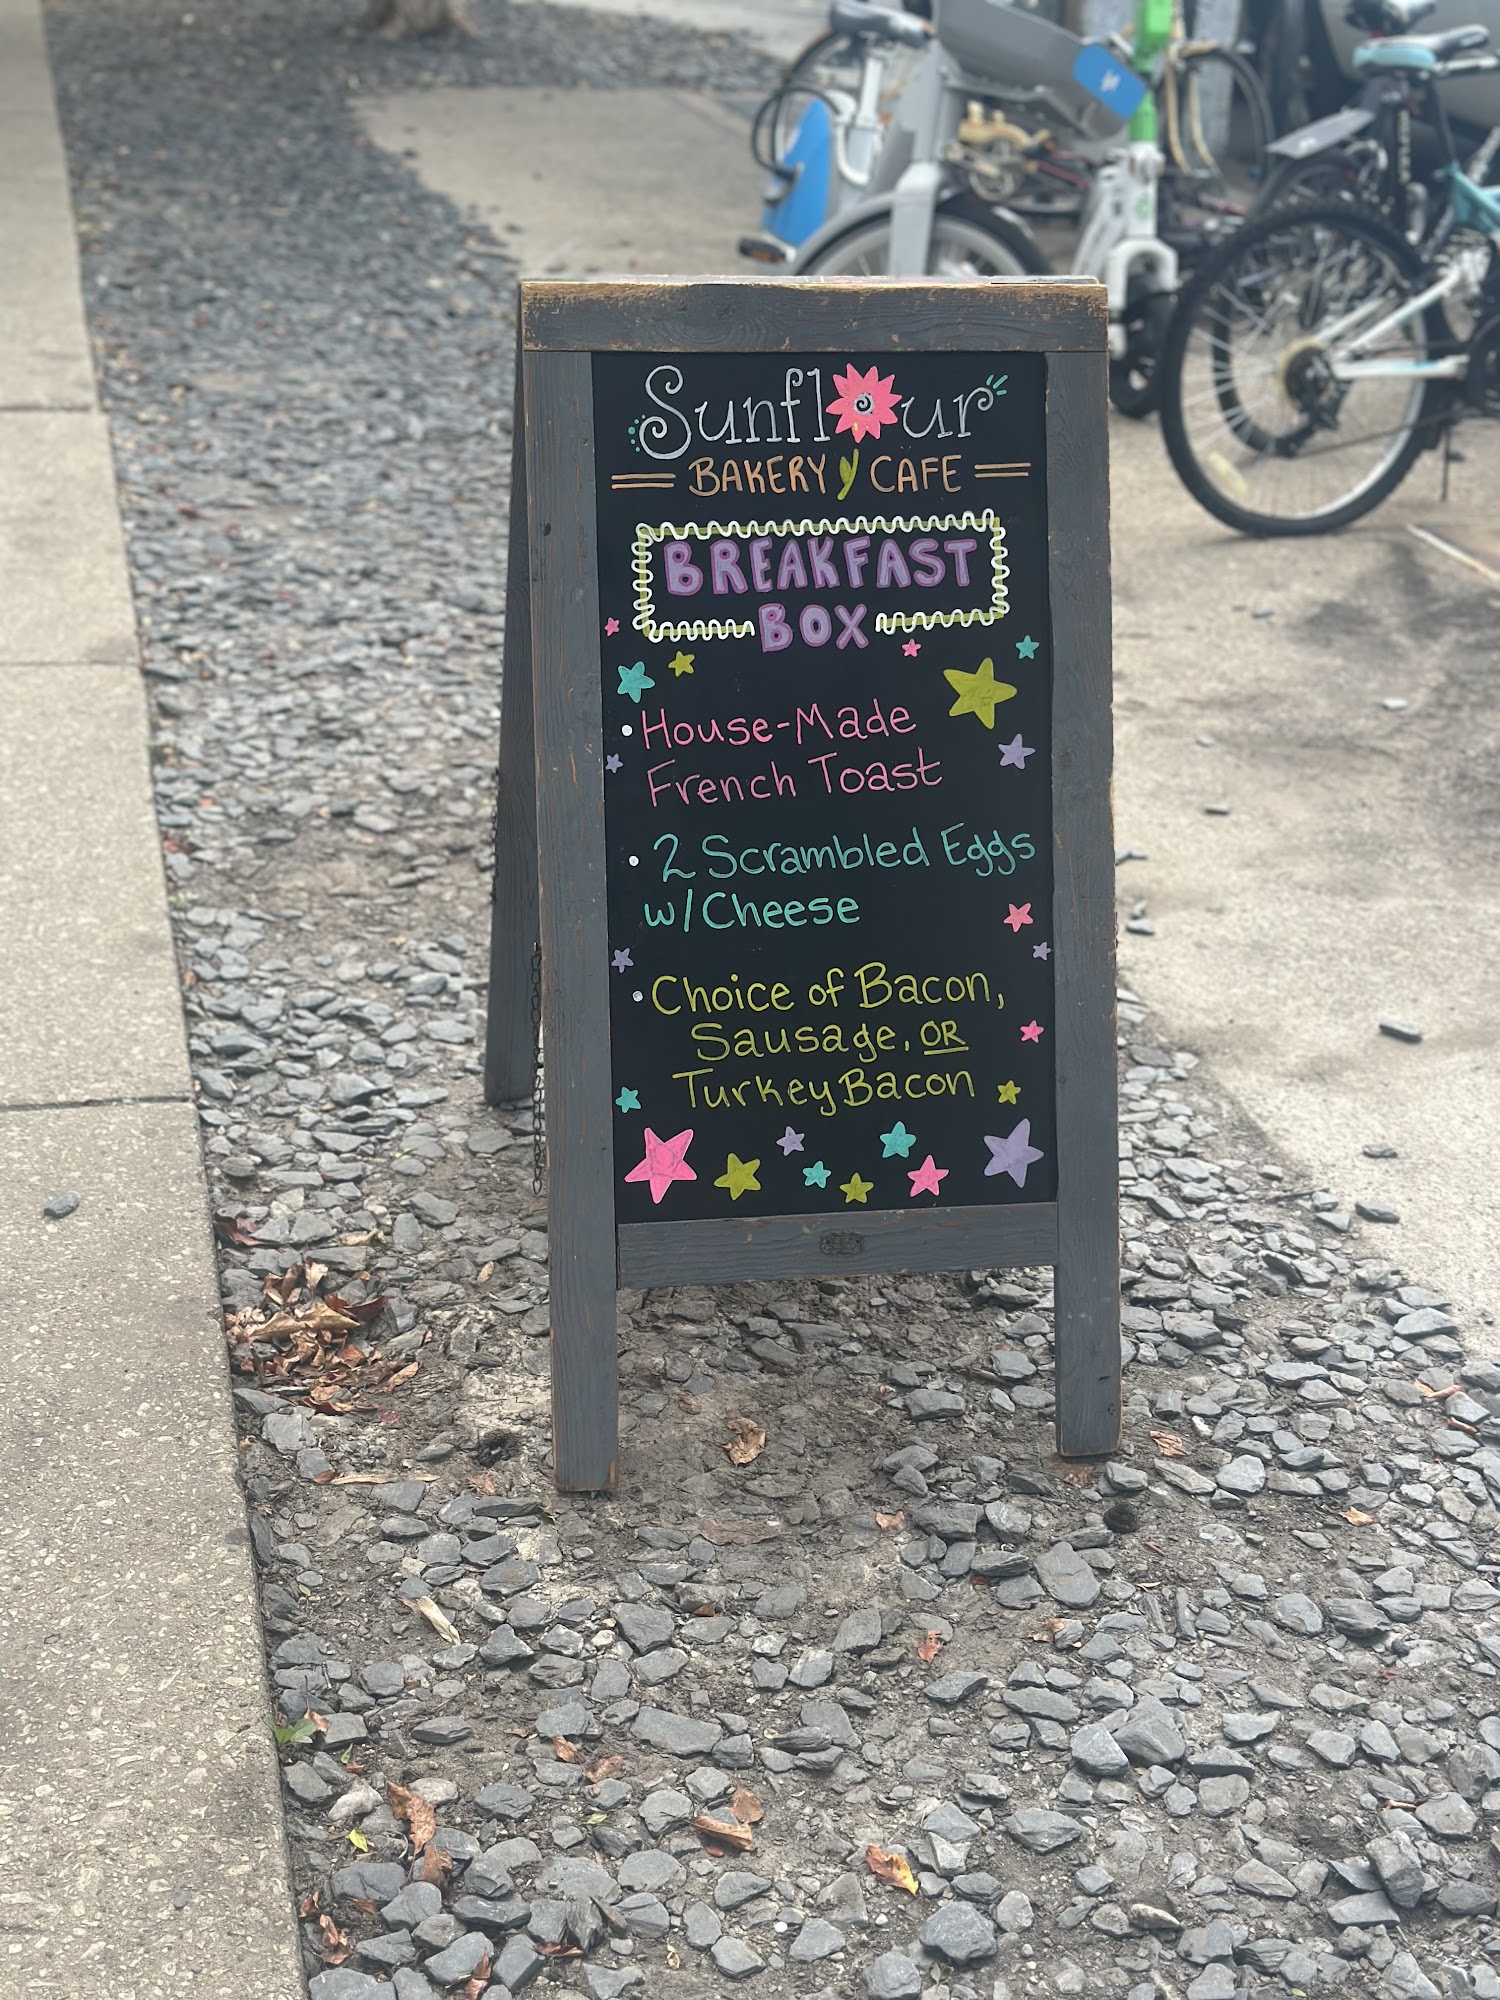 Sunflour
BAKERY y CAFE
BREAKFAST
BOX
• House-Made
French Toast
• 2 Scrambled Eggs
w/Cheese
• Choice of Bacon,
Sausage, OR
Turkey Bacon